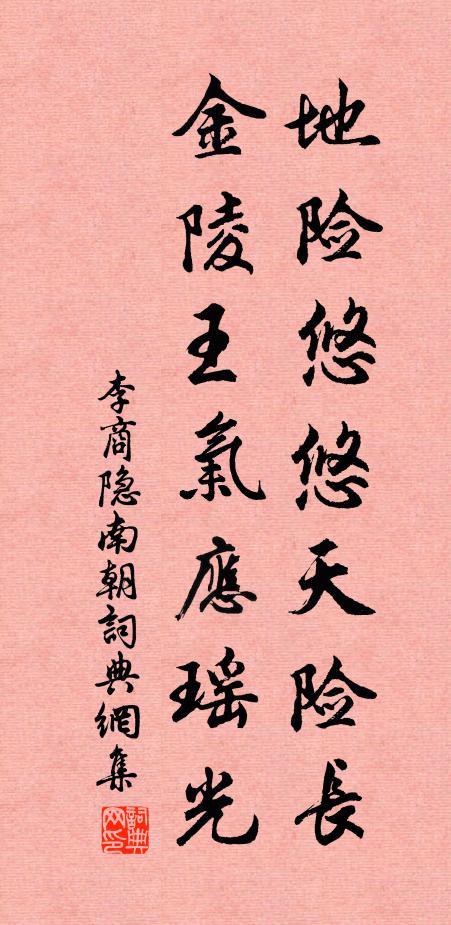 地险悠悠天险長
金陵王氣應瑶光
李商隐南朝詞典網集
詞典网印